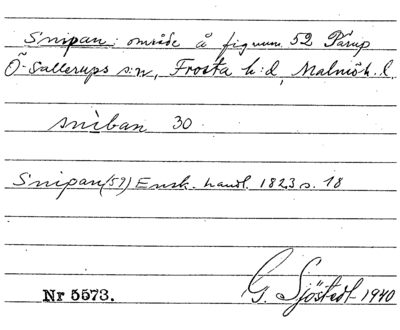 Snipan: område å fignum. 52 Pärup
Ö. Sallerups s:n, Frosta h:d, Malmöh. l.
sniban 30
Snipan (59) Ensk. handl. 1823 s. 18
Nr 5573.
G. Sjöstedt 1940